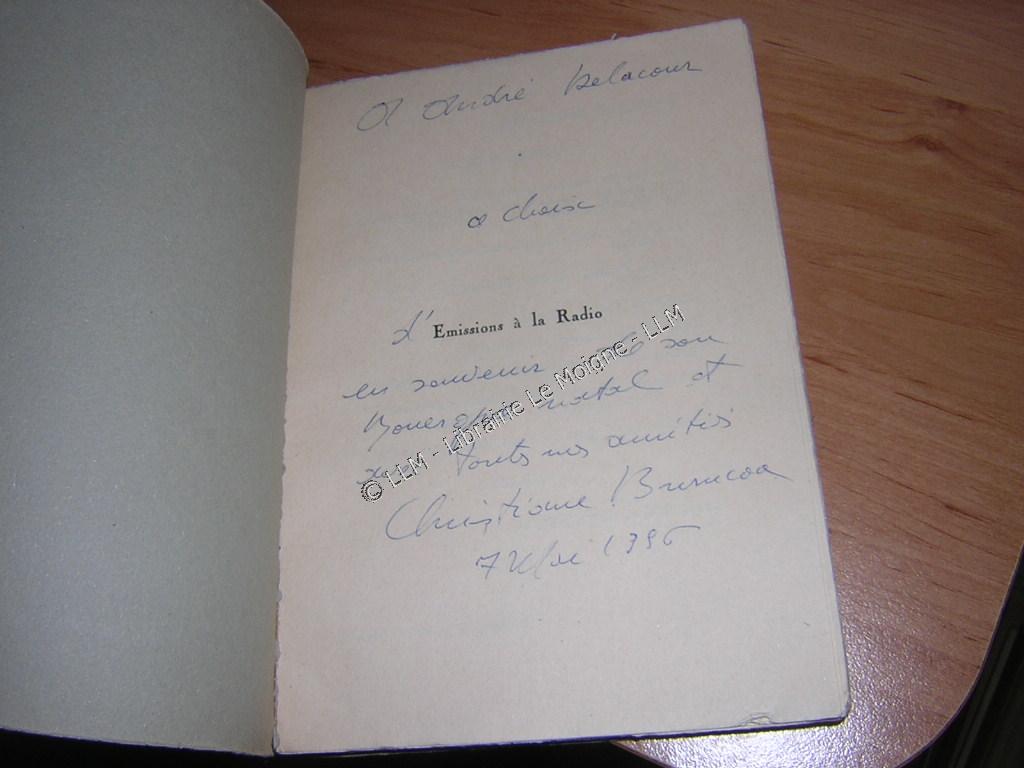 A André Delacour
ce choix
d' Emissions à la Radio
en souvenir de son
natal et
toutes nos amitiés
Christiane
7 Mai
© LLM - Librairie Le Moigne - LLM